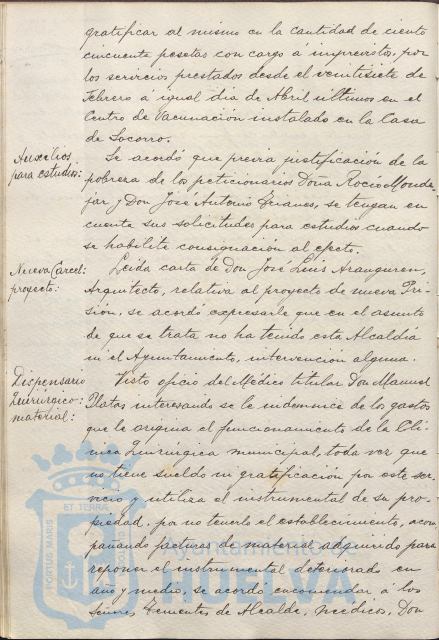 gratificar al mismo en la cantidad de ciento
cincuenta pesetas con cargo á imprevistos, por
los servicios prestados desde el veintisiete de
Febrero á igual dia de Abril últimos en el
Centro de Vacunación instalado en la Casa
de Socorro.
Auxilios
para estudios:
Se acordó que previa justificación de la
pobreza de los peticionarios Doña Rocío Monde
jar y Don José Antonio, se tengan en
cuenta sus solicitudes para estudios cuando
se habilite consignación al efecto.
Nueva Carcel:
proyecto:
Leida carta de Don José Luis Aranguren,
Arquitecto, relativa al proyecto de nueva Pri-
sión, se acordó expresarle que en el asunto
de que se trata no ha tenido esta Alcaldía
ni el Ayuntamiento, intervención alguna.
Dispensario
Quirúrgico:
material:
Visto oficio del Médico titular Don Manuel
Matos interesando se le indemnice de los gastos
que le origina el funcionamiento de la Clí
nica Quirúrgica municipal, toda vez que
no tiene sueldo ni gratificación por este ser-
vicio y utiliza el instrumental de su pro-
piedad, por no tenerlo el establecimiento, acom
pañando facturas de material adquirido para
reponer el instrumental deteriorado en
año y medio, se acordó encomendar á los
Señores Tenientes de Alcalde, médicos, Don
PORTUS MARIS
ET TERRAE
Ayuntamiento de
HUELVA